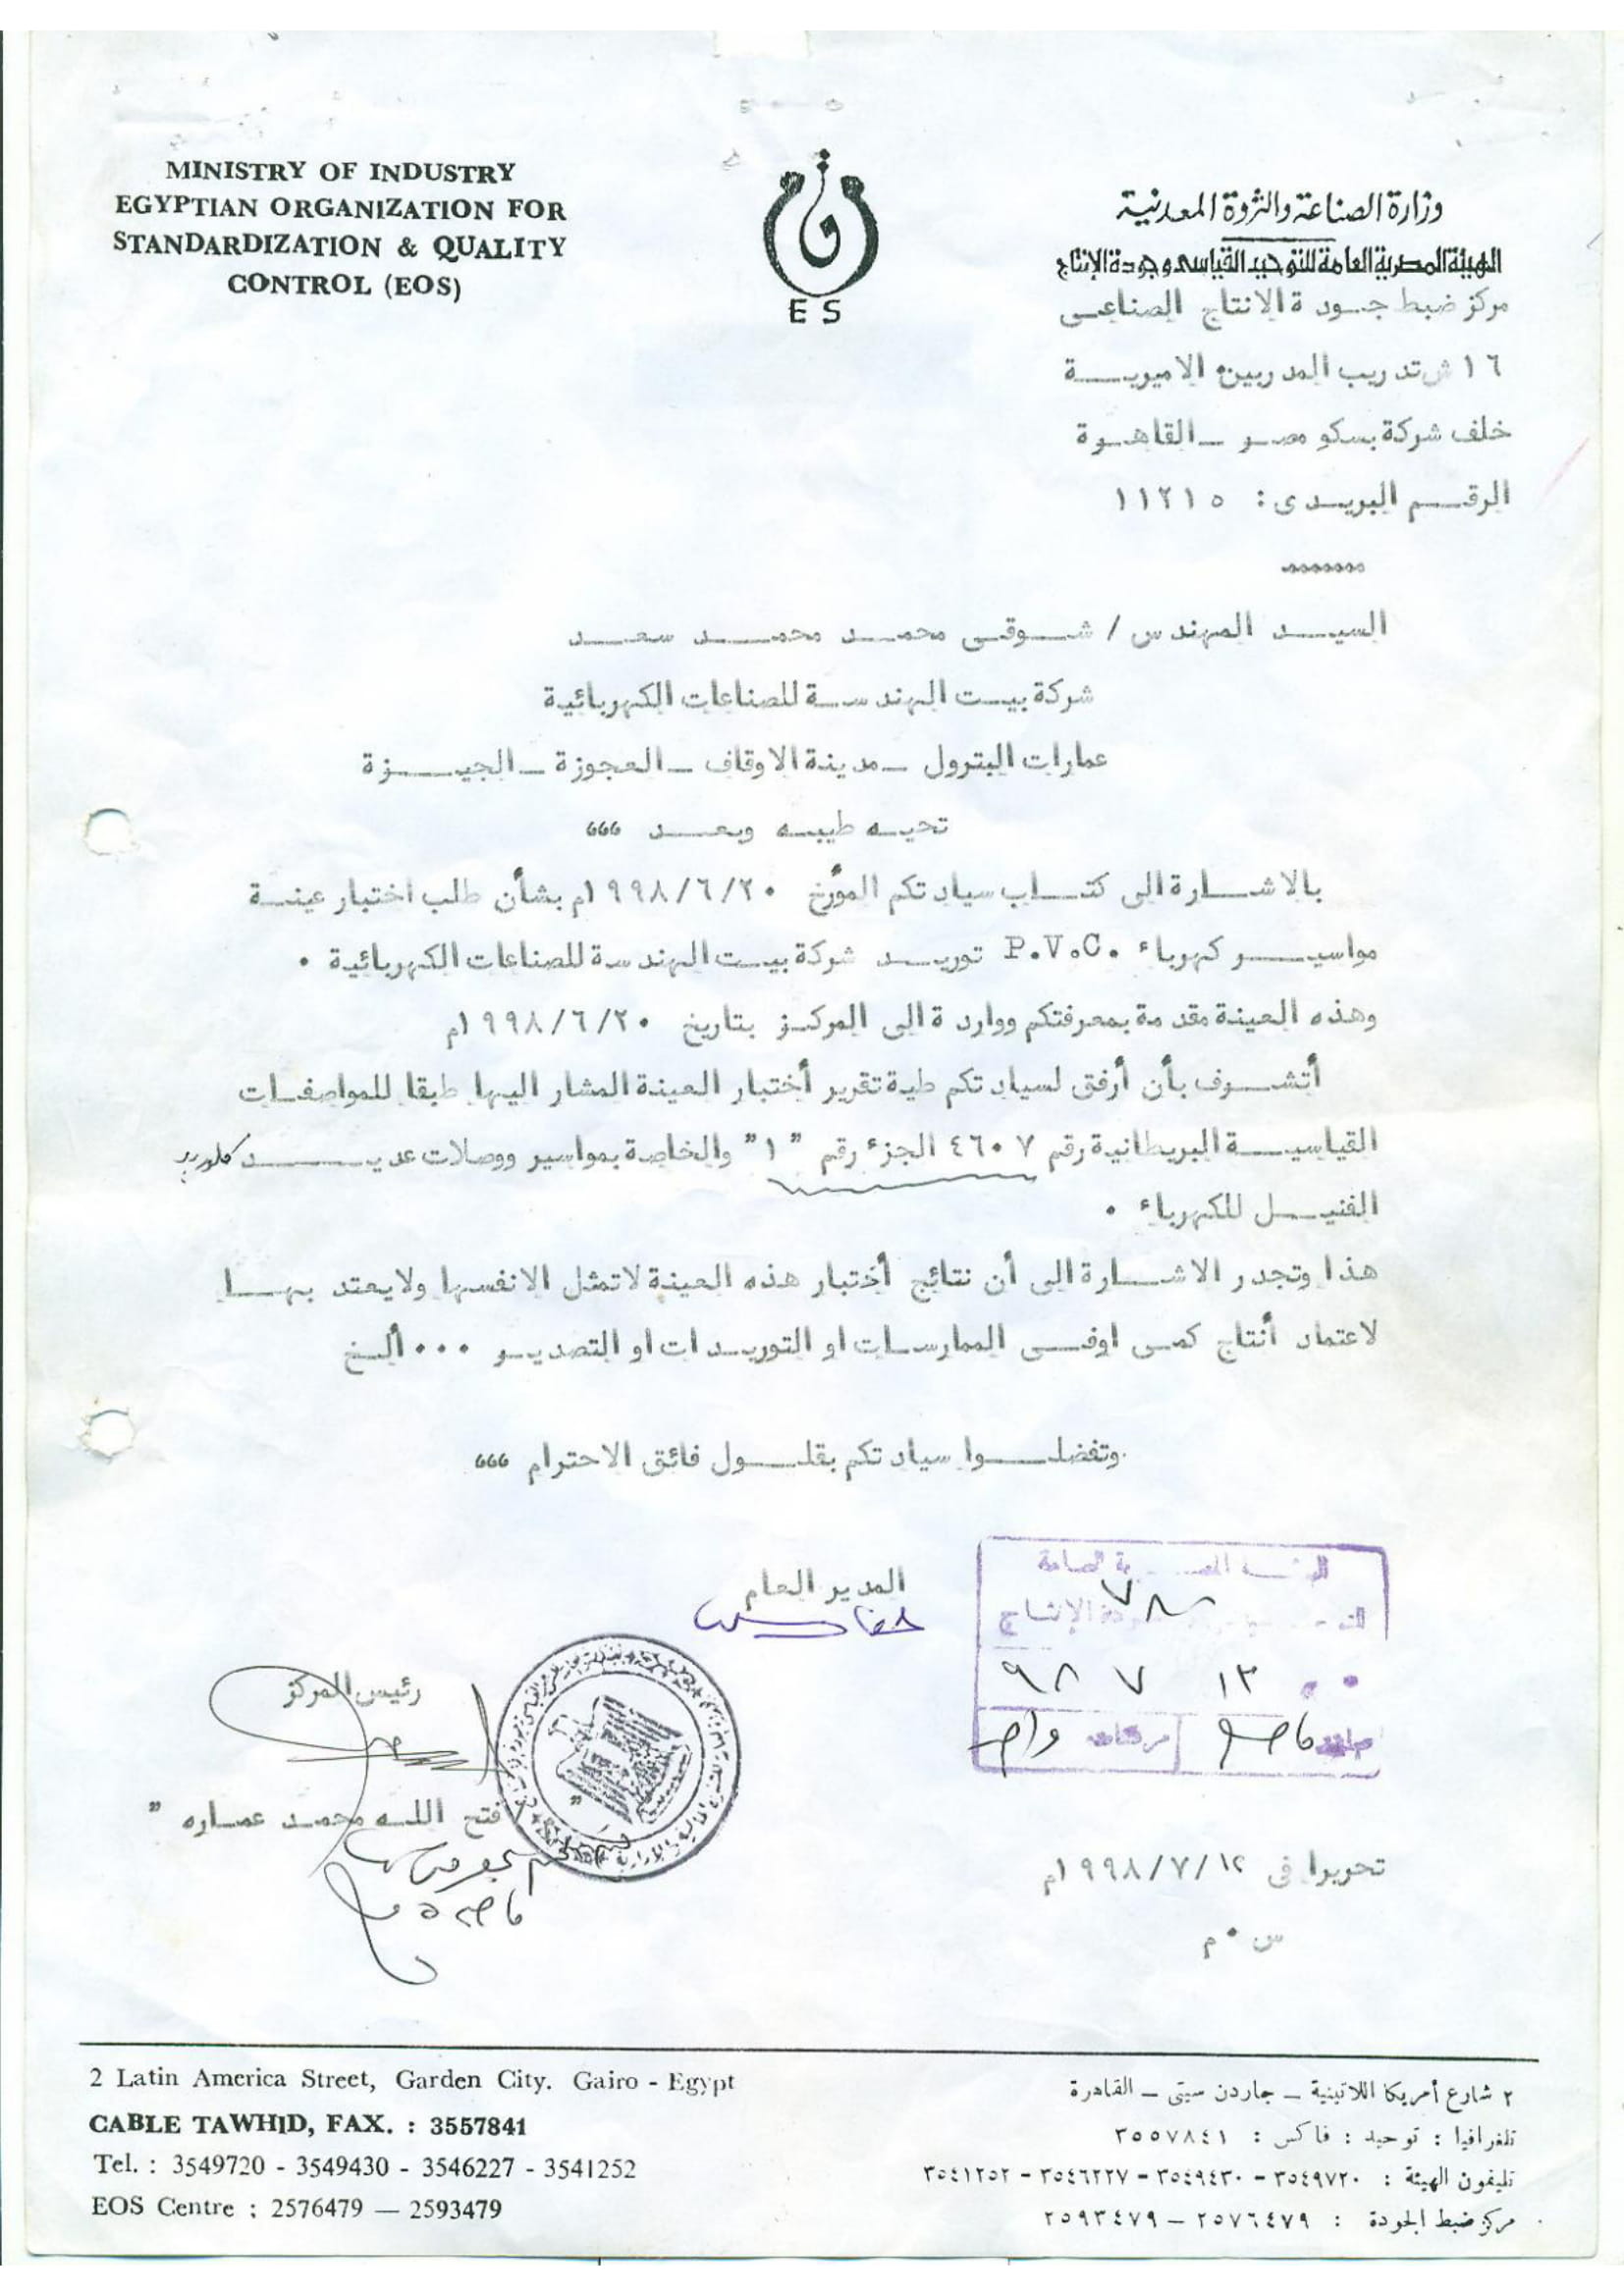 MINISTRY OF INDUSTRY
EGYPTIAN ORGANIZATION FOR
STANDARDIZATION & QUALITY
CONTROL (EOS)
E S
وزارة الصناعة والثروة المعدنية
الهيئة المصرية العامة للتوحيد القياسى وجودة الإنتاج
مركز ضبط جودة الانتاج الصناعى
١٦ ش تدريب المدربين الاميرية
خلف شركة بسكو مصر - القاهرة
الرقم البريدى : ١١٢١٥
السيد المهندس / شوقى محمد محمد سعد
شركة بيت الهندسة للصناعات الكهربائية
عمارات البترول - مدينة الاوقاف - العجوزة - الجيزة
تحيه طيبه وبعد ،،،
بالاشارة الى كتاب سيادتكم المؤرخ ١٩٩٨/٦/٢٠م بشأن طلب اختبار عينة
مواسير كهرباء P.V.C. توريد شركة بيت الهندسة للصناعات الكهربائية .
وهذه العينة مقدمة بمعرفتكم وواردة الى المركز بتاريخ ١٩٩٨/٦/٢٠م
أتشرف بأن أرفق لسيادتكم طية تقرير أختبار العينة المشار اليها طبقا للمواصفات
القياسية البريطانية رقم ٤٦٠٧ الجزء رقم "١" والخاصة بمواسير ووصلات عديد كلوريد
الفنيل للكهرباء .
هذا وتجدر الاشارة الى أن نتائج أختبار هذه العينة لاتمثل الانفسها ولايعتد بها
لاعتماد أنتاج كمى اوفى الممارسات او التوريدات او التصدير ... ألخ
وتفضلوا سيادتكم بقلول فائق الاحترام ،،،
المدير العام
رئيس المركز
" فتح الله محمد عماره "
٧٨
الإنتاج
١٢ ٧ ٩٨
مرفقات
تحريرا فى ١٩٩٨/٧/١٢م
س . م
2 Latin America Street, Garden City. Gairo - Egypt
CABLE TAWHID, FAX. : 3557841
Tel. : 3549720 - 3549430 - 3546227 - 3541252
EOS Centre : 2576479 — 2593479
٢ شارع أمريكا اللاتينية - جاردن سيتى - القاهرة
تلغرافيا : توحيد : فاكس : ٣٥٥٧٨٤١
تليفون الهيئة : ٣٥٤٩٧٢٠ - ٣٥٤٩٤٣٠ - ٣٥٤٦٢٢٧ - ٣٥٤١٢٥٢
مركز ضبط الجودة : ٢٥٧٦٤٧٩ - ٢٥٩٣٤٧٩